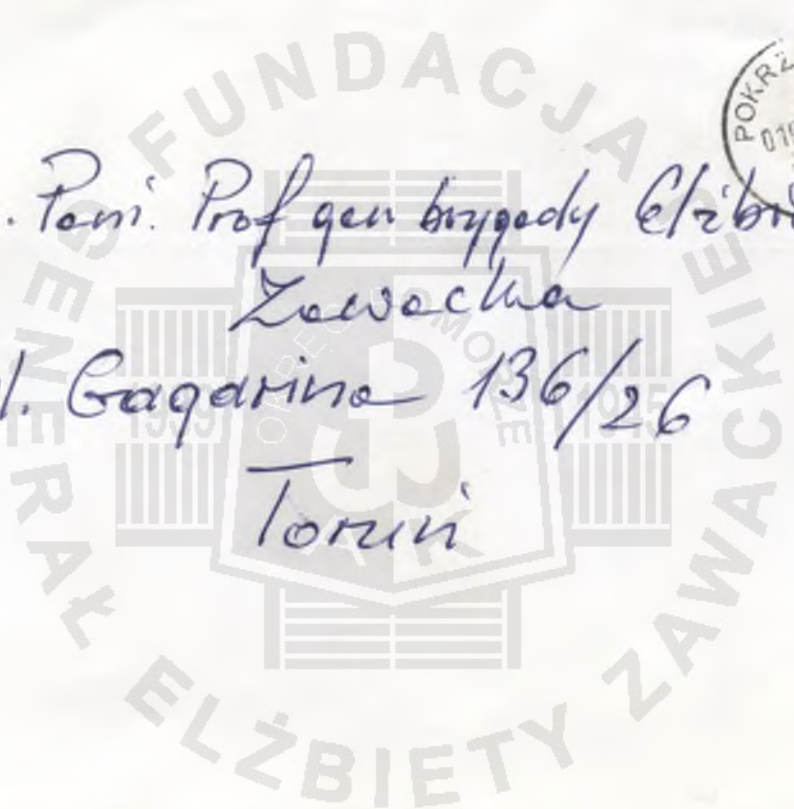 . Pani. Prof gen brygady Elżbi
Zawacka
l. Gagarina 136/26
Toruń
POKRZ
010
FUNDACJA
GENERAŁ ELŻBIETY ZAWACKIEJ
OKRĘG POMORZE
1939 1945
AK